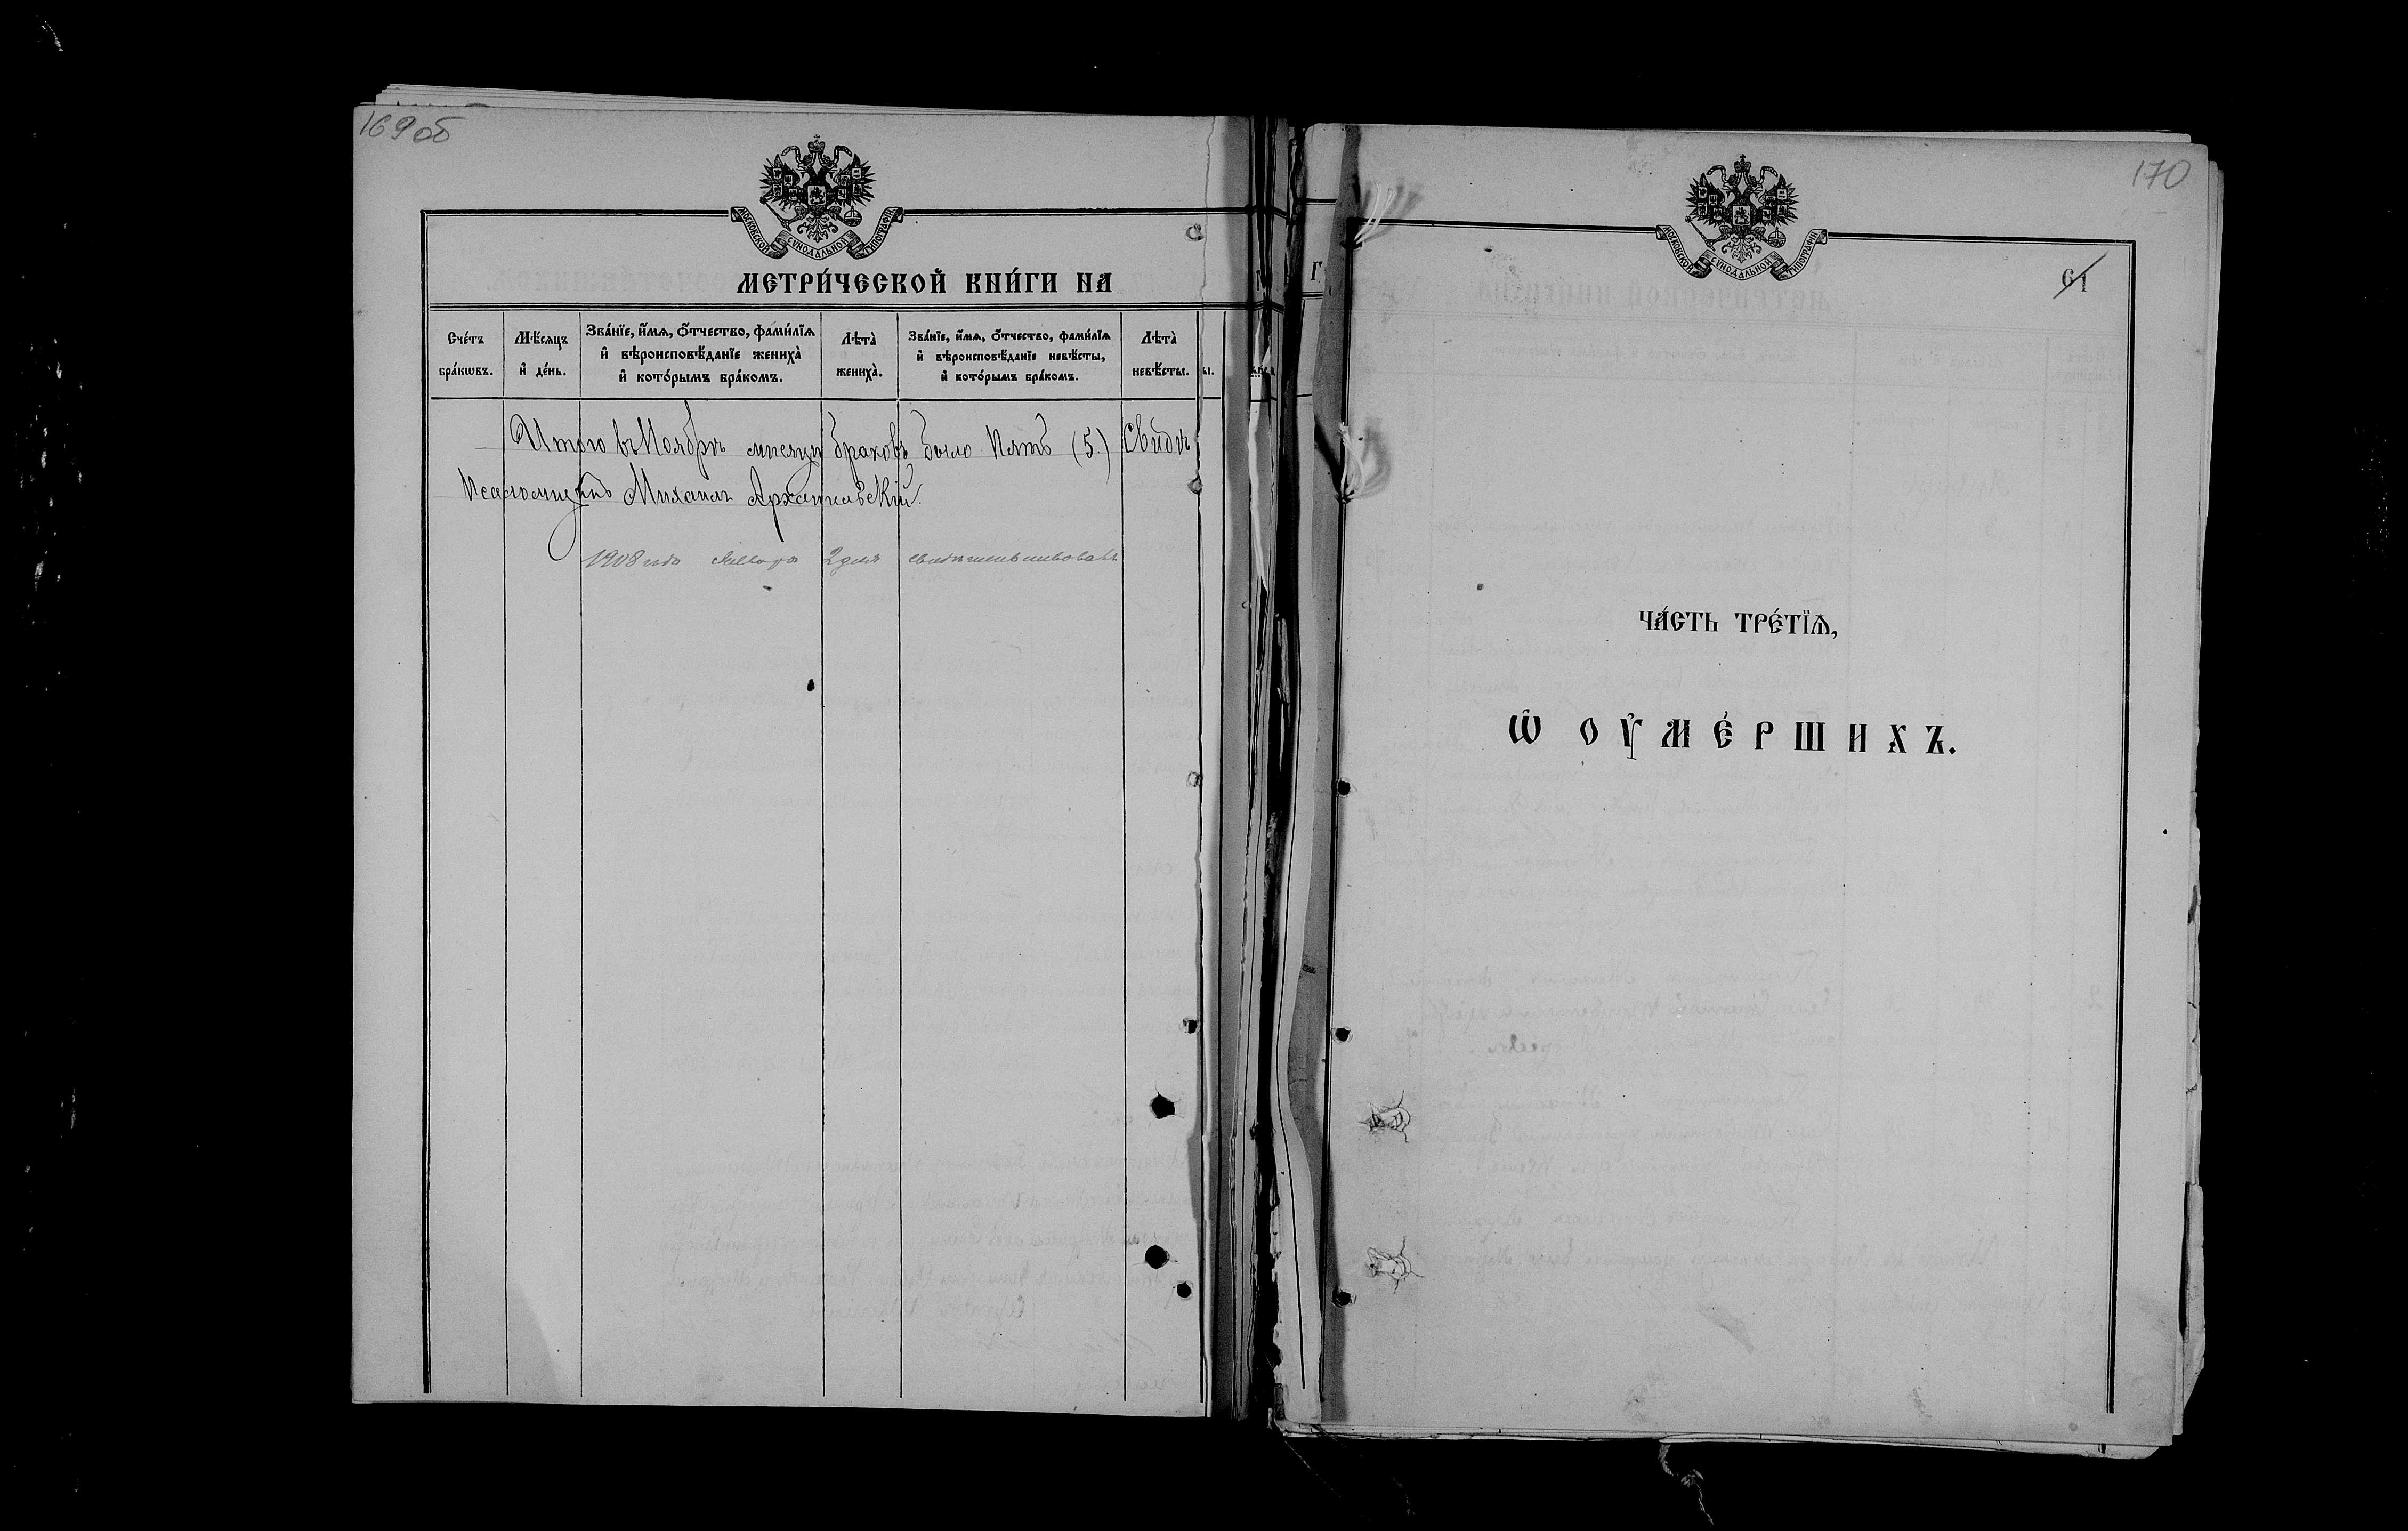 169 об
МОСКОВСКОЙ СУНОДАЛЬНОЙ ТИПОГРАФІИ
МЕТРИ́ЧЕСКОЙ КНИ́ГИ НА
Сче́тъ бра́кѡвъ.
Мѣ́сяцъ и҆ де́нь.
Зва́нїе, и҆́мѧ, ѻ҆́тчество, фамѝлїѧ и҆ вѣроисповѣ́данїе жениха̀ и҆ кото́рымъ бра́комъ.
Лѣта̀ жениха̀.
Зва́нїе, и҆́мѧ, ѻ҆́тчество, фамѝлїѧ и҆ вѣроисповѣ́данїе невѣ́сты, и҆ кото́рымъ бра́комъ.
Лѣта̀ невѣ́сты.
Итого въ Ноябрѣ мѣсяцѣ браковъ было Пять (5.) Свидѣ
Псаломщикъ Михаилъ
1908 года Января 2 дня свидѣтельствовалъ
170
МОСКОВСКОЙ СУНОДАЛЬНОЙ ТИПОГРАФІИ
61
ЧА́СТЬ ТРЕ́ТЇѦ,
Ѡ҆ ОУ҆МЕ́РШИХЪ.